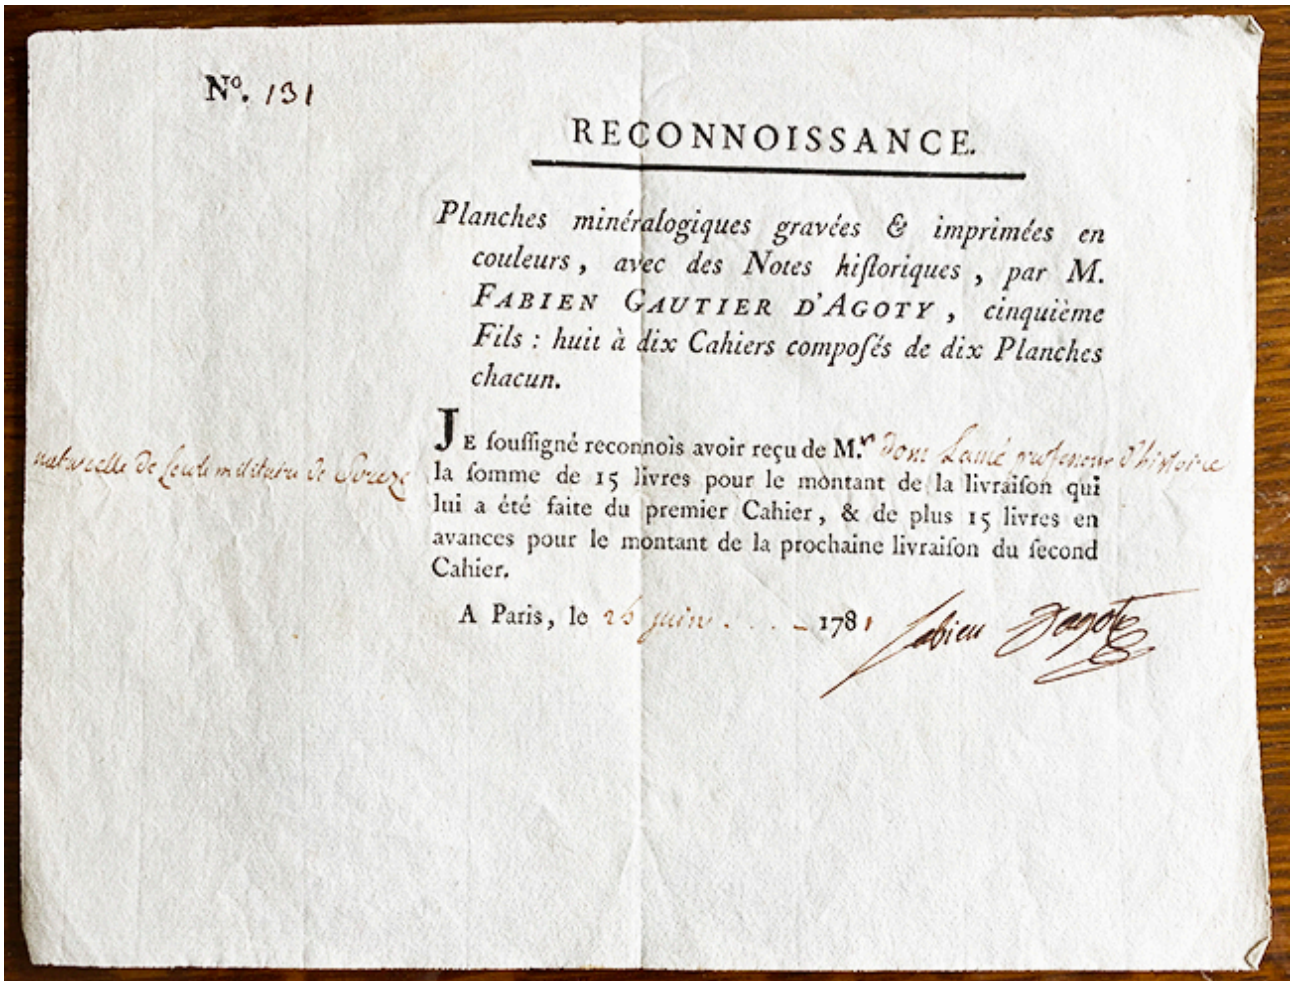 Nº. 131
RECONNOISSANCE.
Planches minéralogiques gravées & imprimées en
couleurs, avec des Notes hiſtoriques, par M.
FABIEN GAUTIER D'AGOTY, cinquième
Fils : huit à dix Cahiers compoſés de dix Planches
chacun.
JE ſouſſigné reconnois avoir reçu de M.r dom Lainé professeur d'histoire
naturelle de Lecole militaire de Soreze
la ſomme de 15 livres pour le montant de la livraiſon qui
lui a été faite du premier Cahier, & de plus 15 livres en
avances pour le montant de la prochaine livraiſon du ſecond
Cahier.
A Paris, le juin . . . - 1781 fabien Dagoty